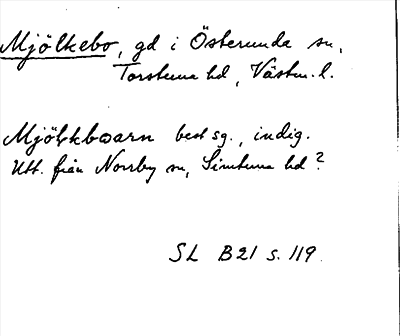 Mjölkebo, gd i Österunda sn,
Torstuna hd, Västm. l.
Mjölkbwarn best sg., indig.
Utt. från Norrby sn, Simtuna hd?
SL B21 s. 119.